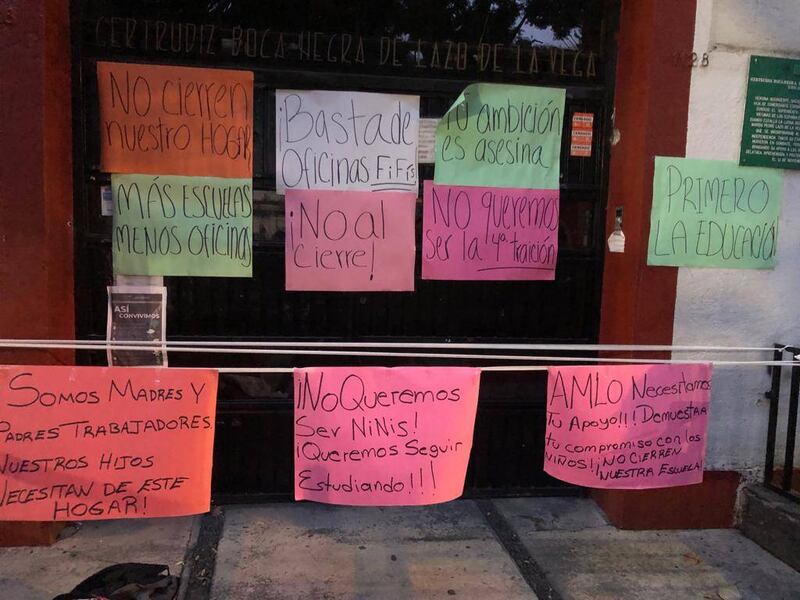 GERTRUDIZ BOCA NEGRA DE LAZO DE LA VEGA
No cierren
nuestro HOGAR
¡Basta de
Oficinas FiFis
Tu ambición
es asesina
MÁS ESCUELAS
MENOS Oficinas
¡No al
Cierre!
NO queremos
ser la 4a traición
PRIMERO
LA EDUCACIÓN
ASÍ
CONVIVIMOS
Somos Madres y
Padres Trabajadores
Nuestros Hijos
Necesitan de este
HOGAR!
¡No Queremos
Ser NiNis!
¡Queremos Seguir
Estudiando!!!
AMLO Necesitamos
Tu Apoyo!!! ¡Demuestra
tu compromiso con los
niños! ¡¡NO CIERREN
NUESTRA ESCUELA!